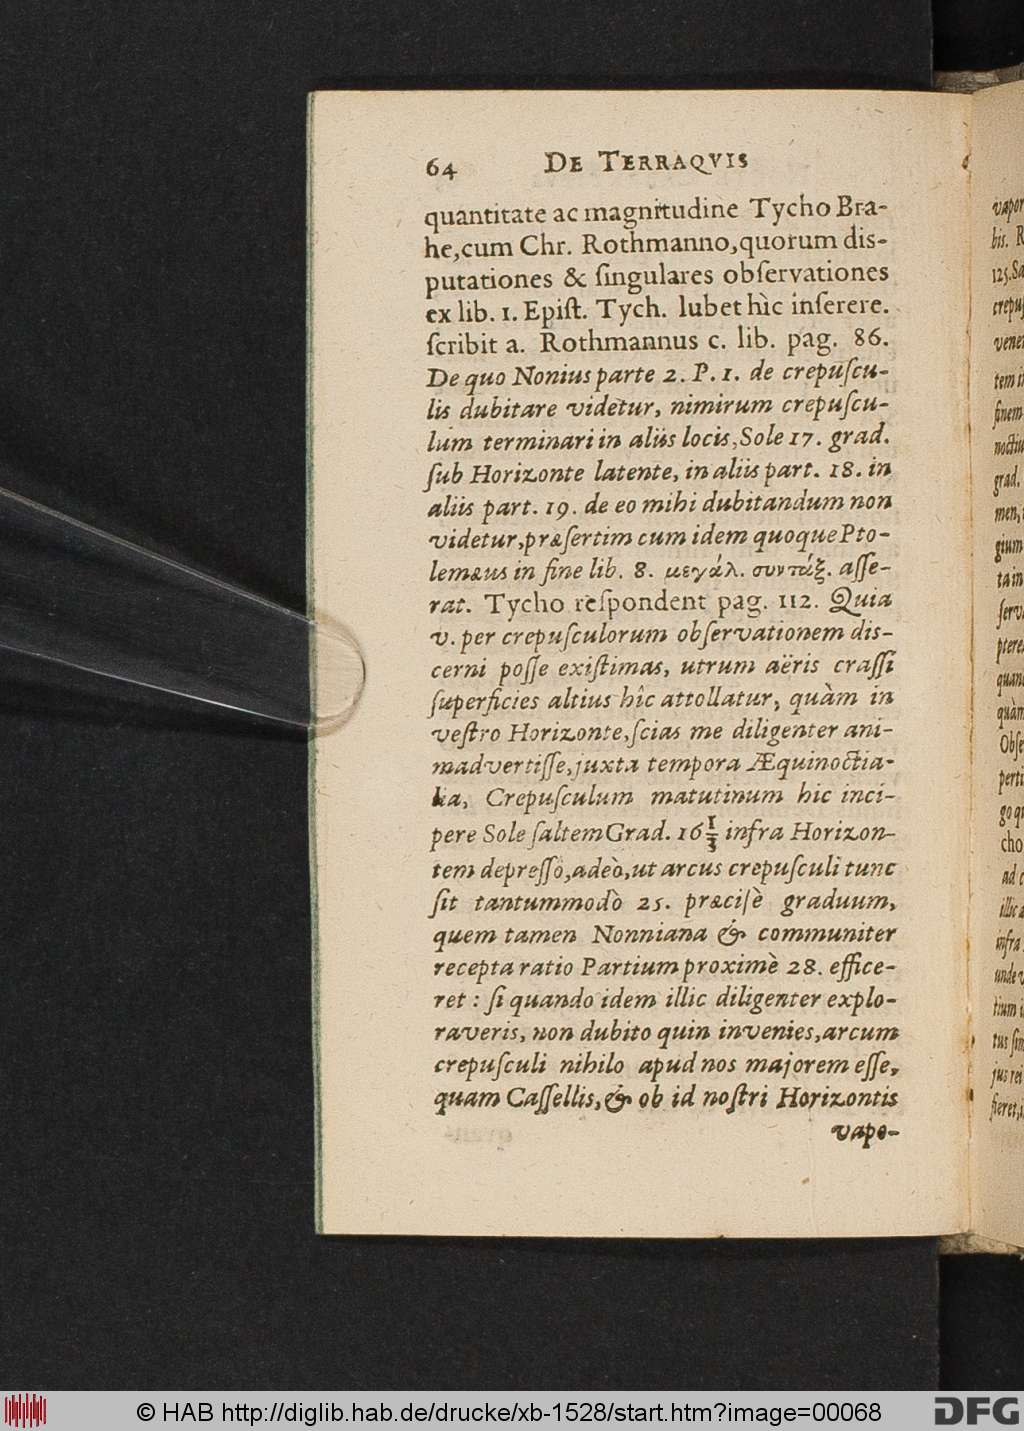 64 DE TERRAQVIS
quantitate ac magnitudine Tycho Bra-
he,cum Chr. Rothmanno,quorum dis-
putationes & ſingulares obſervationes
ex lib. 1. Epiſt. Tych. lubet hìc inſerere.
ſcribit a. Rothmannus c. lib. pag. 86.
De quo Nonius parte 2. P. 1. de crepuſcu-
lis dubitare videtur, nimirum crepuſcu-
lum terminari in aliis locis,Sole 17. grad.
ſub Horizonte latente, in aliis part. 18. in
aliis part. 19. de eo mihi dubitandum non
videtur,præſertim cum idem quoque Pto-
lemæus in fine lib. 8. μεγάλ. συντάξ. aſſe-
rat. Tycho reſpondent pag. 112. Quia
v. per crepuſculorum obſervationem dis-
cerni poſſe exiſtimas, utrum aëris craſſi
ſuperficies altius hîc attollatur, quàm in
veſtro Horizonte,ſcias me diligenter ani-
madvertiſſe,juxta tempora Æquinoctia-
lia, Crepuſculum matutinum hic inci-
pere Sole ſaltem Grad. 16 1/3 infra Horizon-
tem depreſſo,adeò,ut arcus crepuſculi tunc
ſit tantummodò 25. præciſè graduum,
quem tamen Nonniana & communiter
recepta ratio Partium proximè 28. effice-
ret : ſi quando idem illic diligenter explo-
raveris, non dubito quin invenies,arcum
crepuſculi nihilo apud nos majorem eſſe,
quam Caſſellis,& ob id noſtri Horizontis
vapo-
vapor
bis. R
125.Sa
crepuſ
vener
tem i
finem
noctiu
grad.
men,
gium
ta in
ſerva
pterea
quan
quàm
Obſe
perti
go q
cho
ad c
illic a
infra
unde v
tium i
tus ſim
jus rei
fieret,i
© HAB http://diglib.hab.de/drucke/xb-1528/start.htm?image=00068
DFG